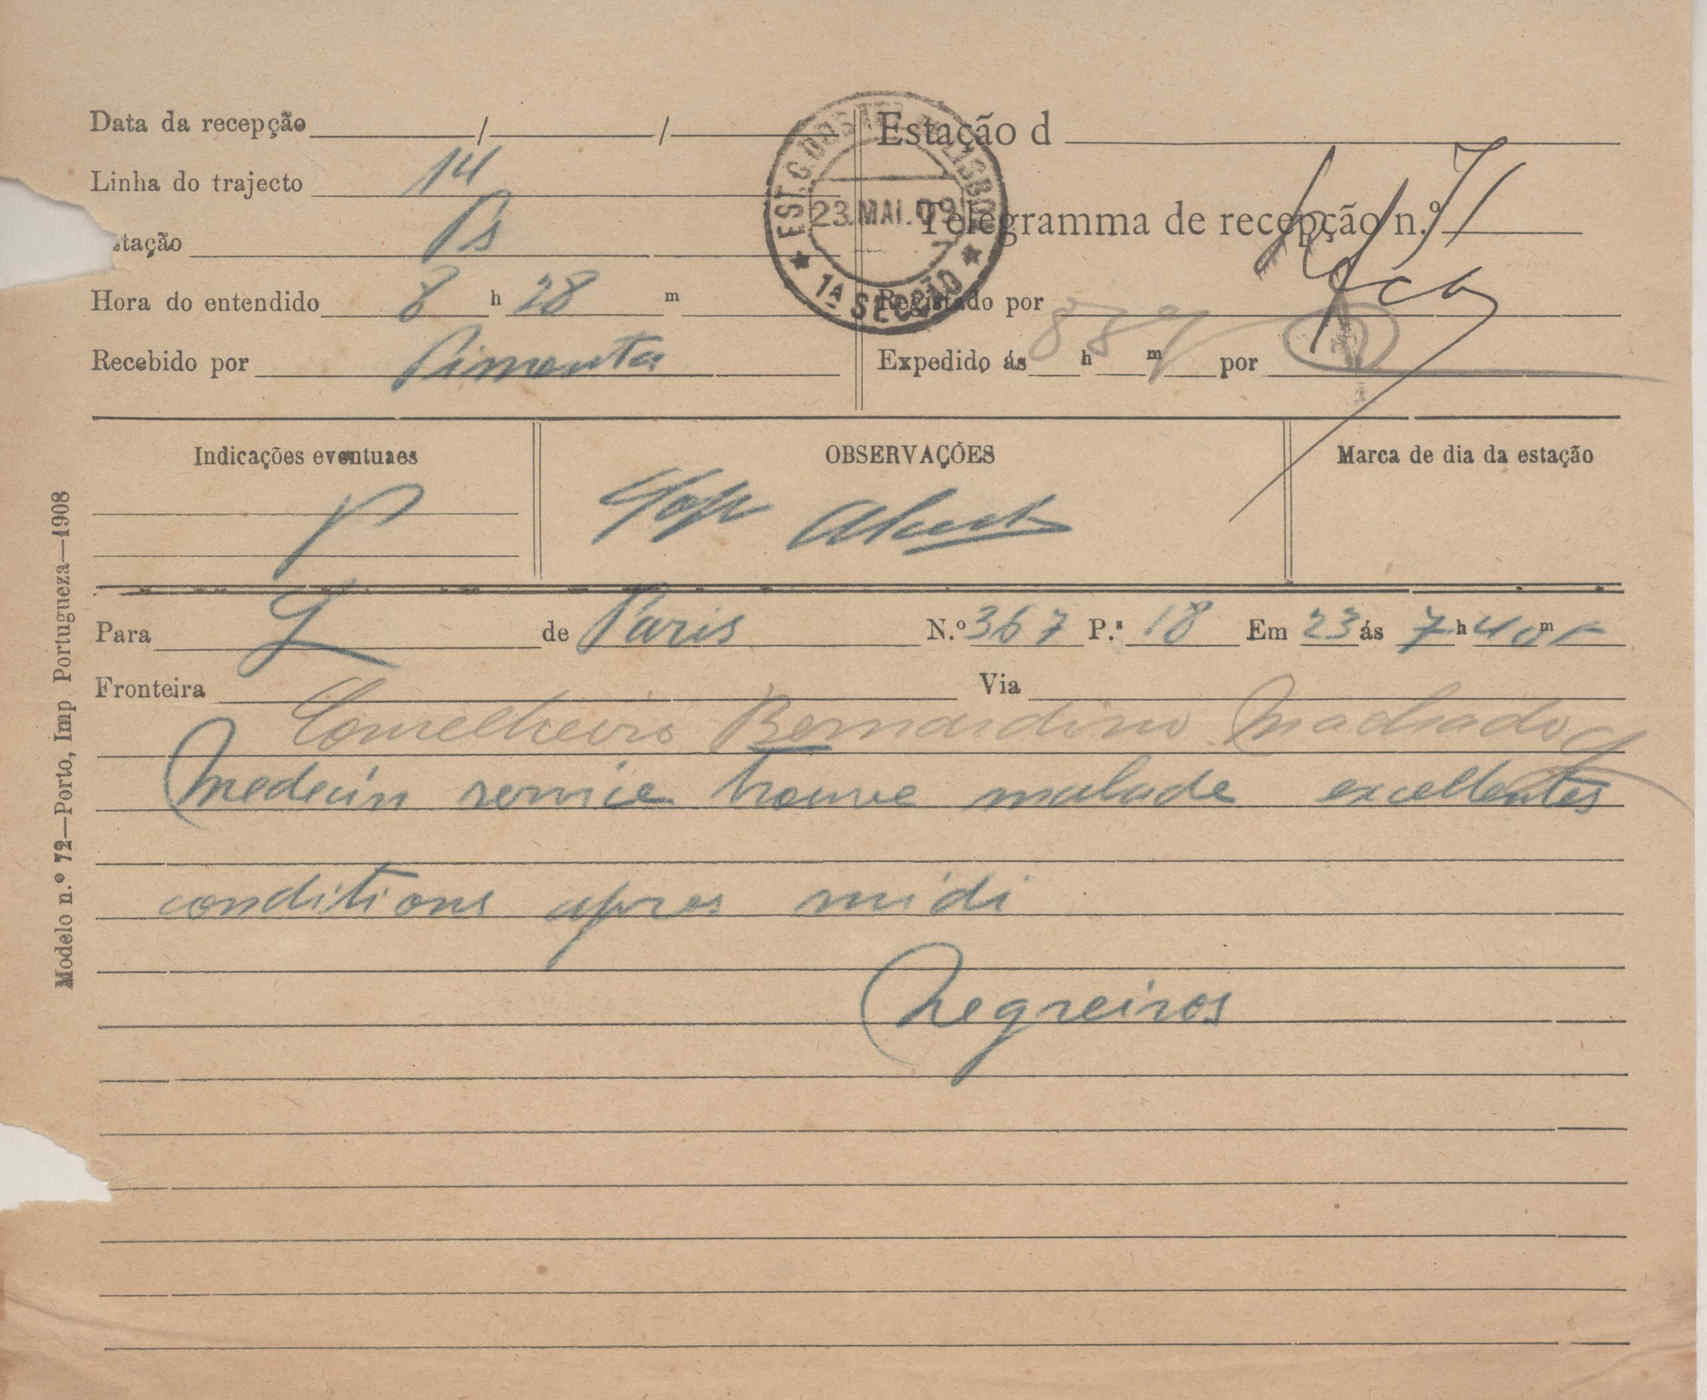 Data da recepção / /
Linha do trajecto 14
stação Ps
Hora do entendido 8 h 28 m
Recebido por Pimenta
EST. C. DOS 23 MAI. 09 LISBOA 1ª SECÇÃO
Estação d
Telegramma de recepção n.º 71
Registado por
Expedido ás 8 h 39 m por
Indicações eventuaes
OBSERVAÇÕES
Marca de dia da estação
Modelo n.º 72—Porto, Imp Portugueza—1908
Para L de Paris N.º 367 P.ª 18 Em 23 ás 7 h 40 m
Fronteira Via
Conselheiro Bernardino Machado
Medecin service trouve malade excellentes
conditions apres midi
Negreiros